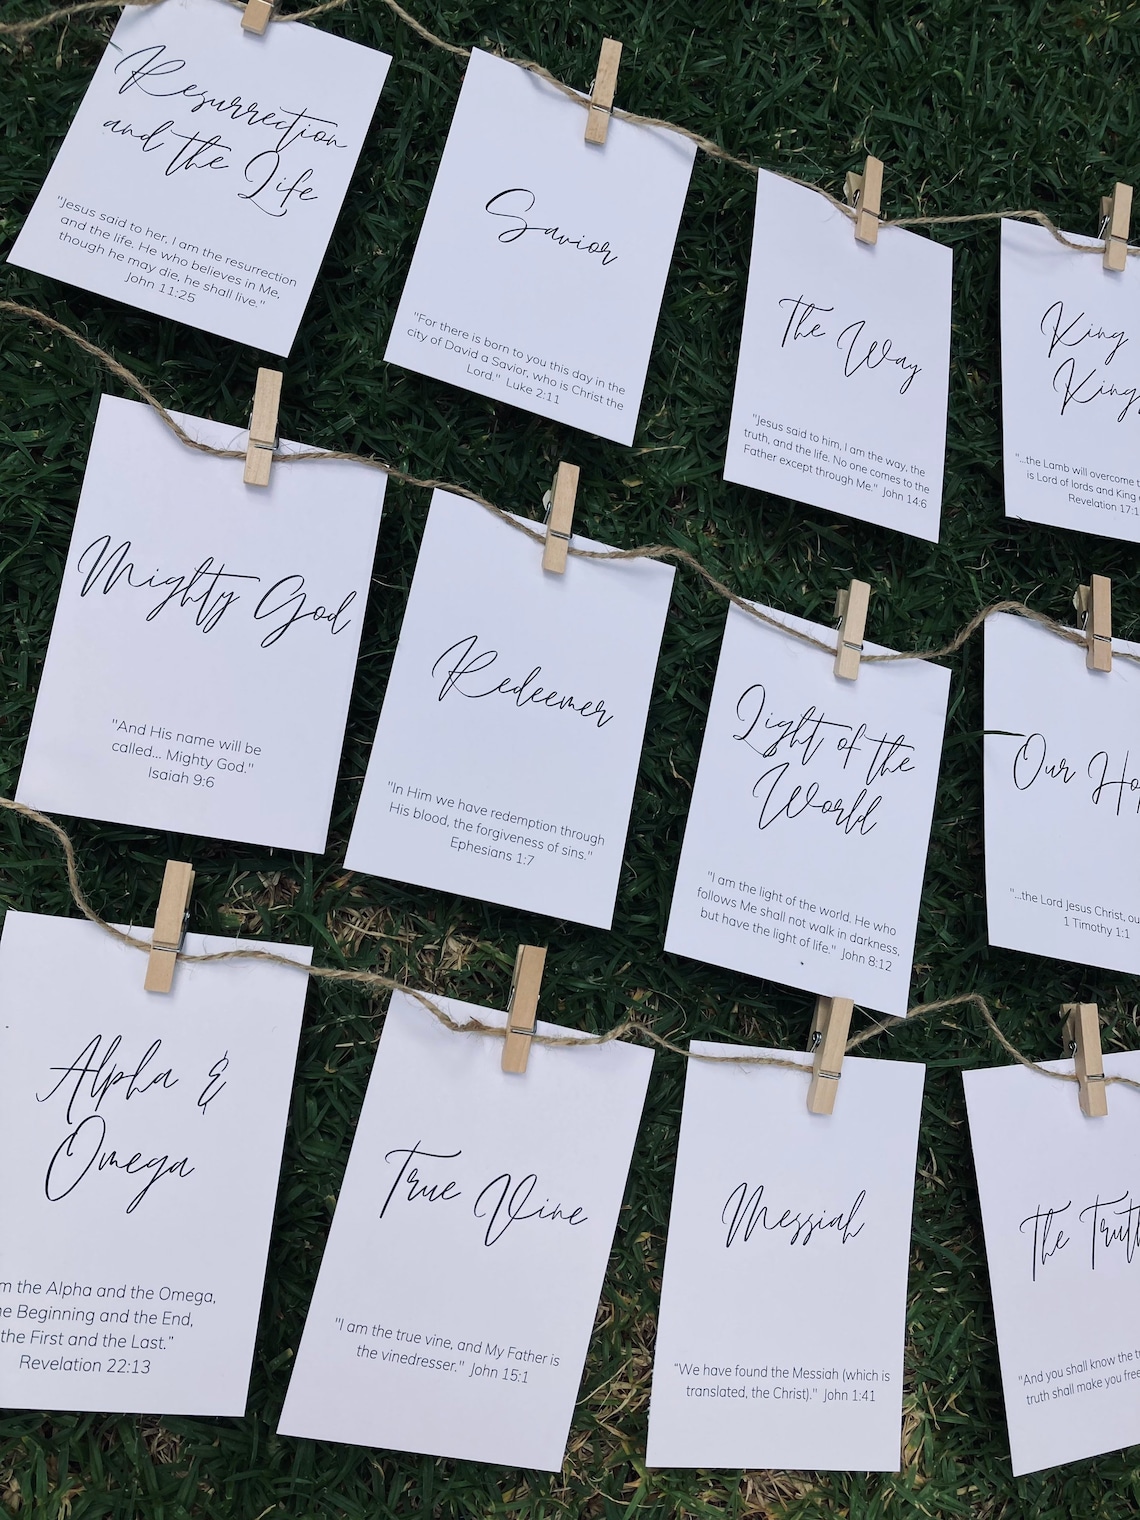 Resurrection
and the Life
"Jesus said to her, I am the resurrection
and the life. He who believes in Me,
though he may die, he shall live."
John 11:25
Savior
"For there is born to you this day in the
city of David a Savior, who is Christ the
Lord." Luke 2:11
The Way
"Jesus said to him, I am the way, the
truth, and the life. No one comes to the
Father except through Me." John 14:6
King
Kings
"...the Lamb will overcome
is Lord of lords and King
Revelation
Mighty God
"And His name will be
called... Mighty God."
Isaiah 9:6
Redeemer
"In Him we have redemption through
His blood, the forgiveness of sins."
Ephesians 1:7
Light of the
World
"I am the light of the world. He who
follows Me shall not walk in darkness,
but have the light of life." John 8:12
Our
"...the Lord Jesus Christ,
1 Timothy 1:1
Alpha &
Omega
the Alpha and the Omega,
Beginning and the End,
the First and the Last."
Revelation 22:13
True Vine
"I am the true vine, and My Father is
the vinedresser." John 15:1
Messiah
"We have found the Messiah (which is
translated, the Christ)." John 1:41
The Truth
"And you shall know the
truth shall make you free